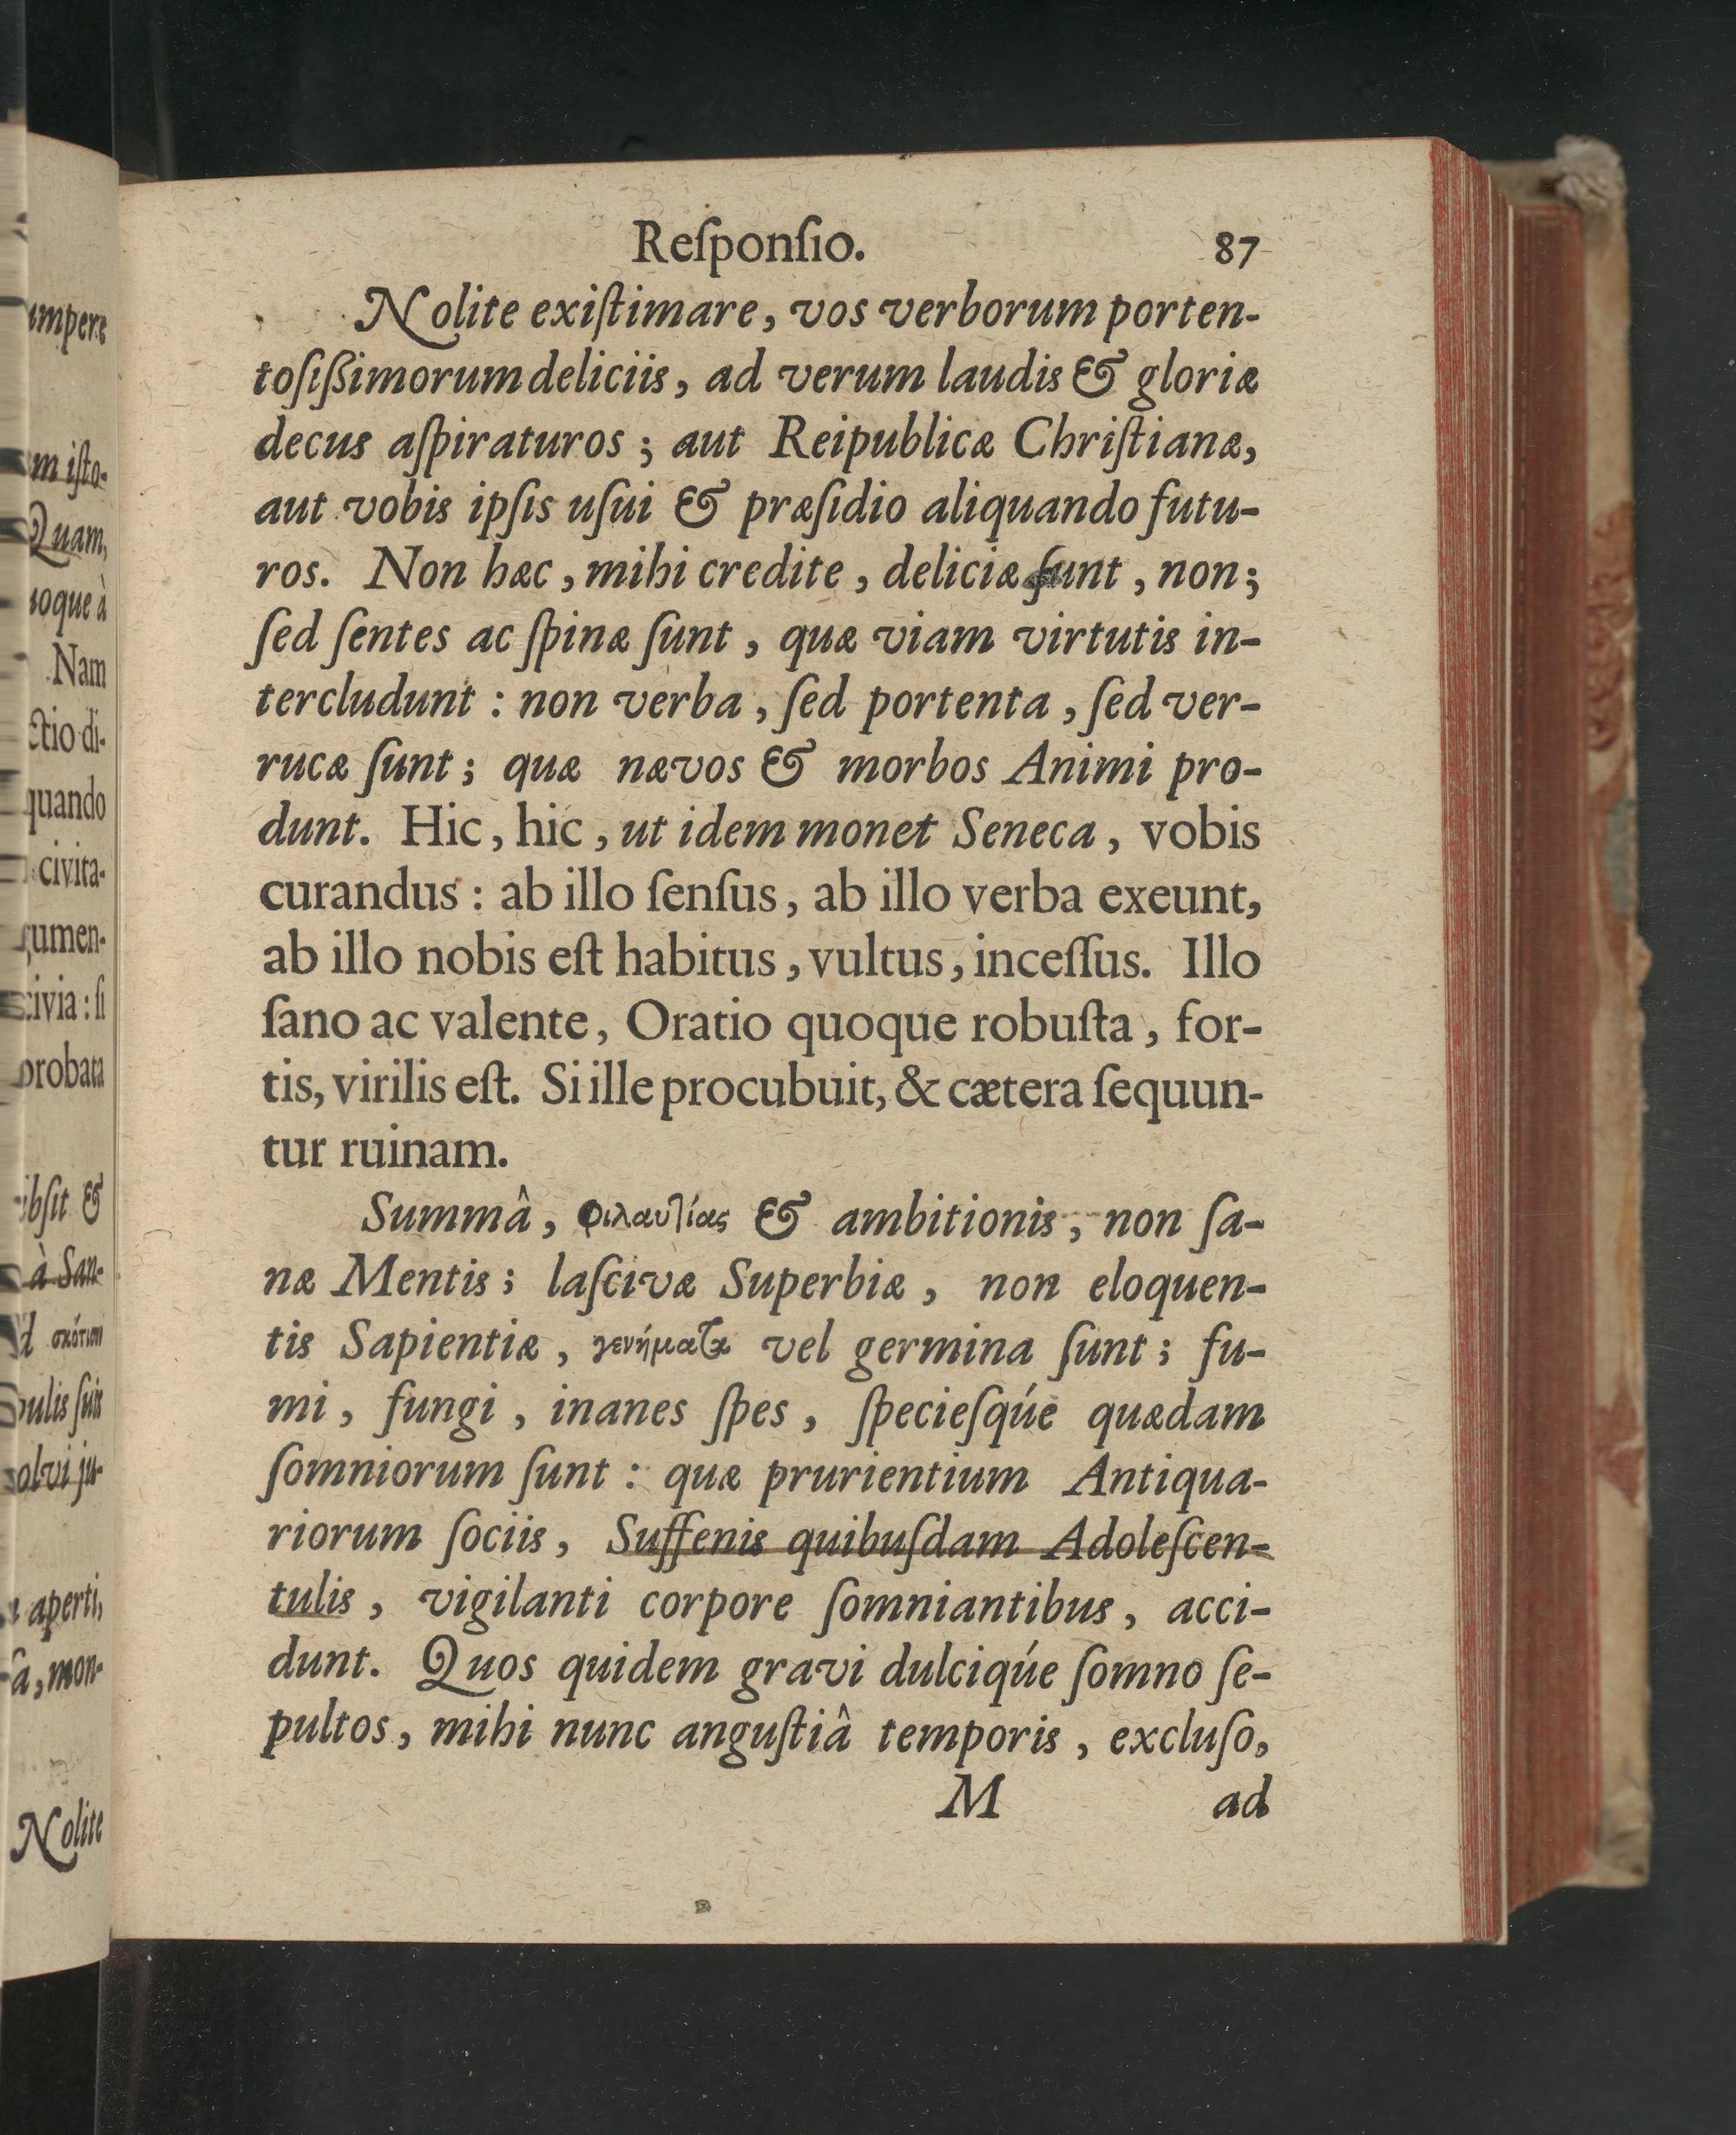 Reſponſio. 87
Nolite exiſtimare, vos verborum porten-
toſißimorum deliciis, ad verum laudis & gloriæ
decus aſpiraturos; aut Reipublicæ Chriſtianæ,
aut vobis ipſis uſui & præſidio aliquando futu-
ros. Non hæc, mihi credite, deliciæ ſunt, non;
ſed ſentes ac ſpinæ ſunt, quæ viam virtutis in-
tercludunt: non verba, ſed portenta, ſed ver-
rucæ ſunt; quæ nævos & morbos Animi pro-
dunt. Hic, hic, ut idem monet Seneca, vobis
curandus: ab illo ſenſus, ab illo verba exeunt,
ab illo nobis eſt habitus, vultus, inceſſus. Illo
ſano ac valente, Oratio quoque robuſta, for-
tis, virilis eſt. Si ille procubuit, & cætera ſequun-
tur ruinam.
Summâ, φιλαυτίας & ambitionis, non ſa-
næ Mentis; laſcivæ Superbiæ, non eloquen-
tis Sapientiæ, γενήματα vel germina ſunt; fu-
mi, fungi, inanes ſpes, ſpecieſqúe quædam
ſomniorum ſunt: quæ prurientium Antiqua-
riorum ſociis, Suffenis quibuſdam Adoleſcen-
tulis, vigilanti corpore ſomniantibus, acci-
dunt. Quos quidem gravi dulciqúe ſomno ſe-
pultos, mihi nunc anguſtiâ temporis, excluſo,
M ad
umpere
m iſto-
Quam,
Nam
ctio di-
quando
civita-
civia: ſi
probata
à San-
σκότιον
aperti,
mon-
Nolite